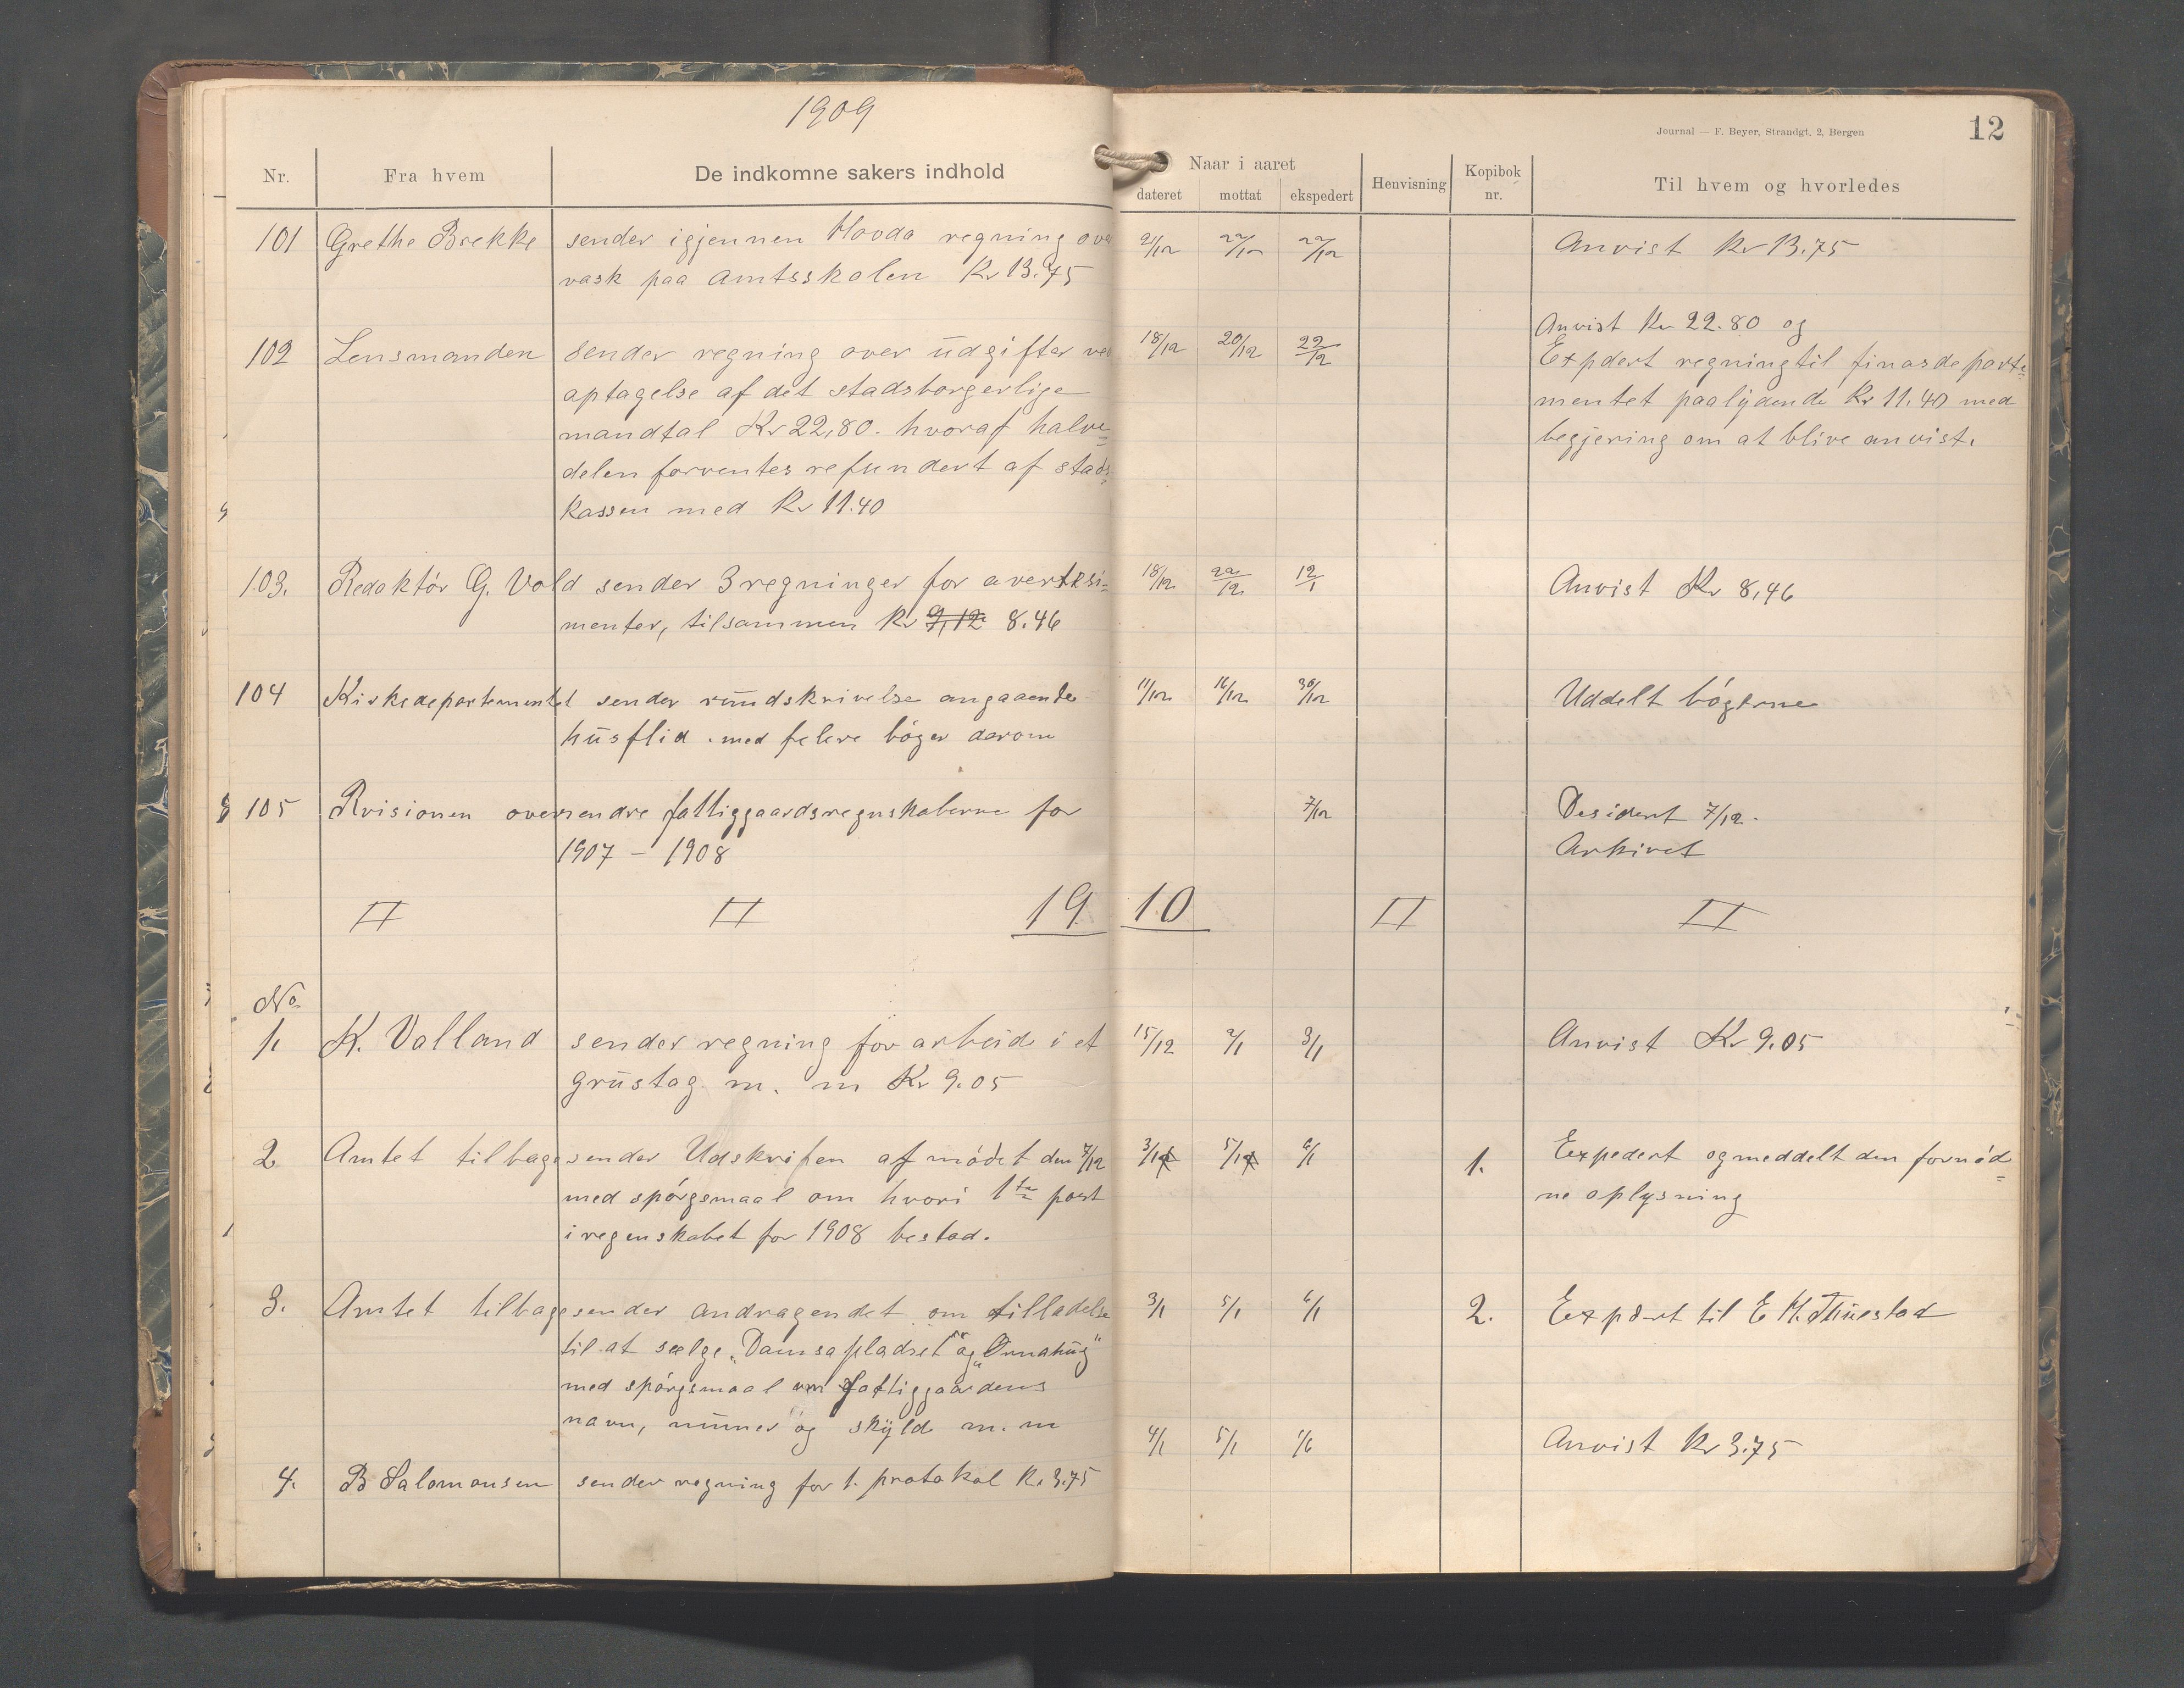 1909
Journal — F. Beyer, Strandgt. 2, Bergen
12
Nr.
Fra hvem
De indkomne sakers indhold
Naar i aaret
dateret
mottat
ekspedert
Henvisning
Kopibok nr.
Til hvem og hvorledes
101 Grethe Brekke sender igjennen Hovda regning over 2/12 22/12 22/12 Anvist Kr 13.75
vask paa amtsskolen Kr 13.75
Anvist Kr 22.80 og
102 Lensmanden sender regning over udgifter ved 18/12 20/12 22/12 Expdert regning til finasdeparte=
optagelse af det stadsborgerlige mentet paalydende Kr 11.40 med
mandtal Kr 22,80. hvoraf halve= begjering om at blive anvist.
delen forventes refundert af stads=
kassen med Kr 11.40
103. Redaktör G. Vold sender 3 regninger for avertesi= 18/12 22/12 12/1 Anvist Kr 8,46
menter, tilsammen Kr 9,12 8.46
104 Kirkedepartementet sender rundskrivelse angaaende 11/12 16/12 30/12 Uddelt bögerne
husflid. med felere böger derom
105 Rvisionen oversendre fattiggaardsregnskaberne for 7/12 Desidert 7/12.
1907 - 1908 Arkivet
1910
No
1. K. Valland sender regning for arbeide i et 15/12 2/1 3/1 Anvist Kr 9.05
grustag m. m Kr 9.05
2 Amtet tilbagesender Udskriften af mödet den 7/12 3/1 5/1 6/1 1. Expedert og meddelt den fornöd=
med spörgsmaal om hvori 1te post ne oplysning
i regenskabet for 1908 bestod.
3. Amtet tilbagesender andragendet om tilladelse 3/1 5/1 6/1 2. Expdert til E H. Thuestad
til at sælge „Damsapladset" og „Ornahug"
med spörgsmaal om fattiggaardens
navn, numer og skyld m. m
4. B Salomonsen sender regning for 1. protokol Kr 3.75 4/1 5/1 1/6 Anvist Kr 3.75